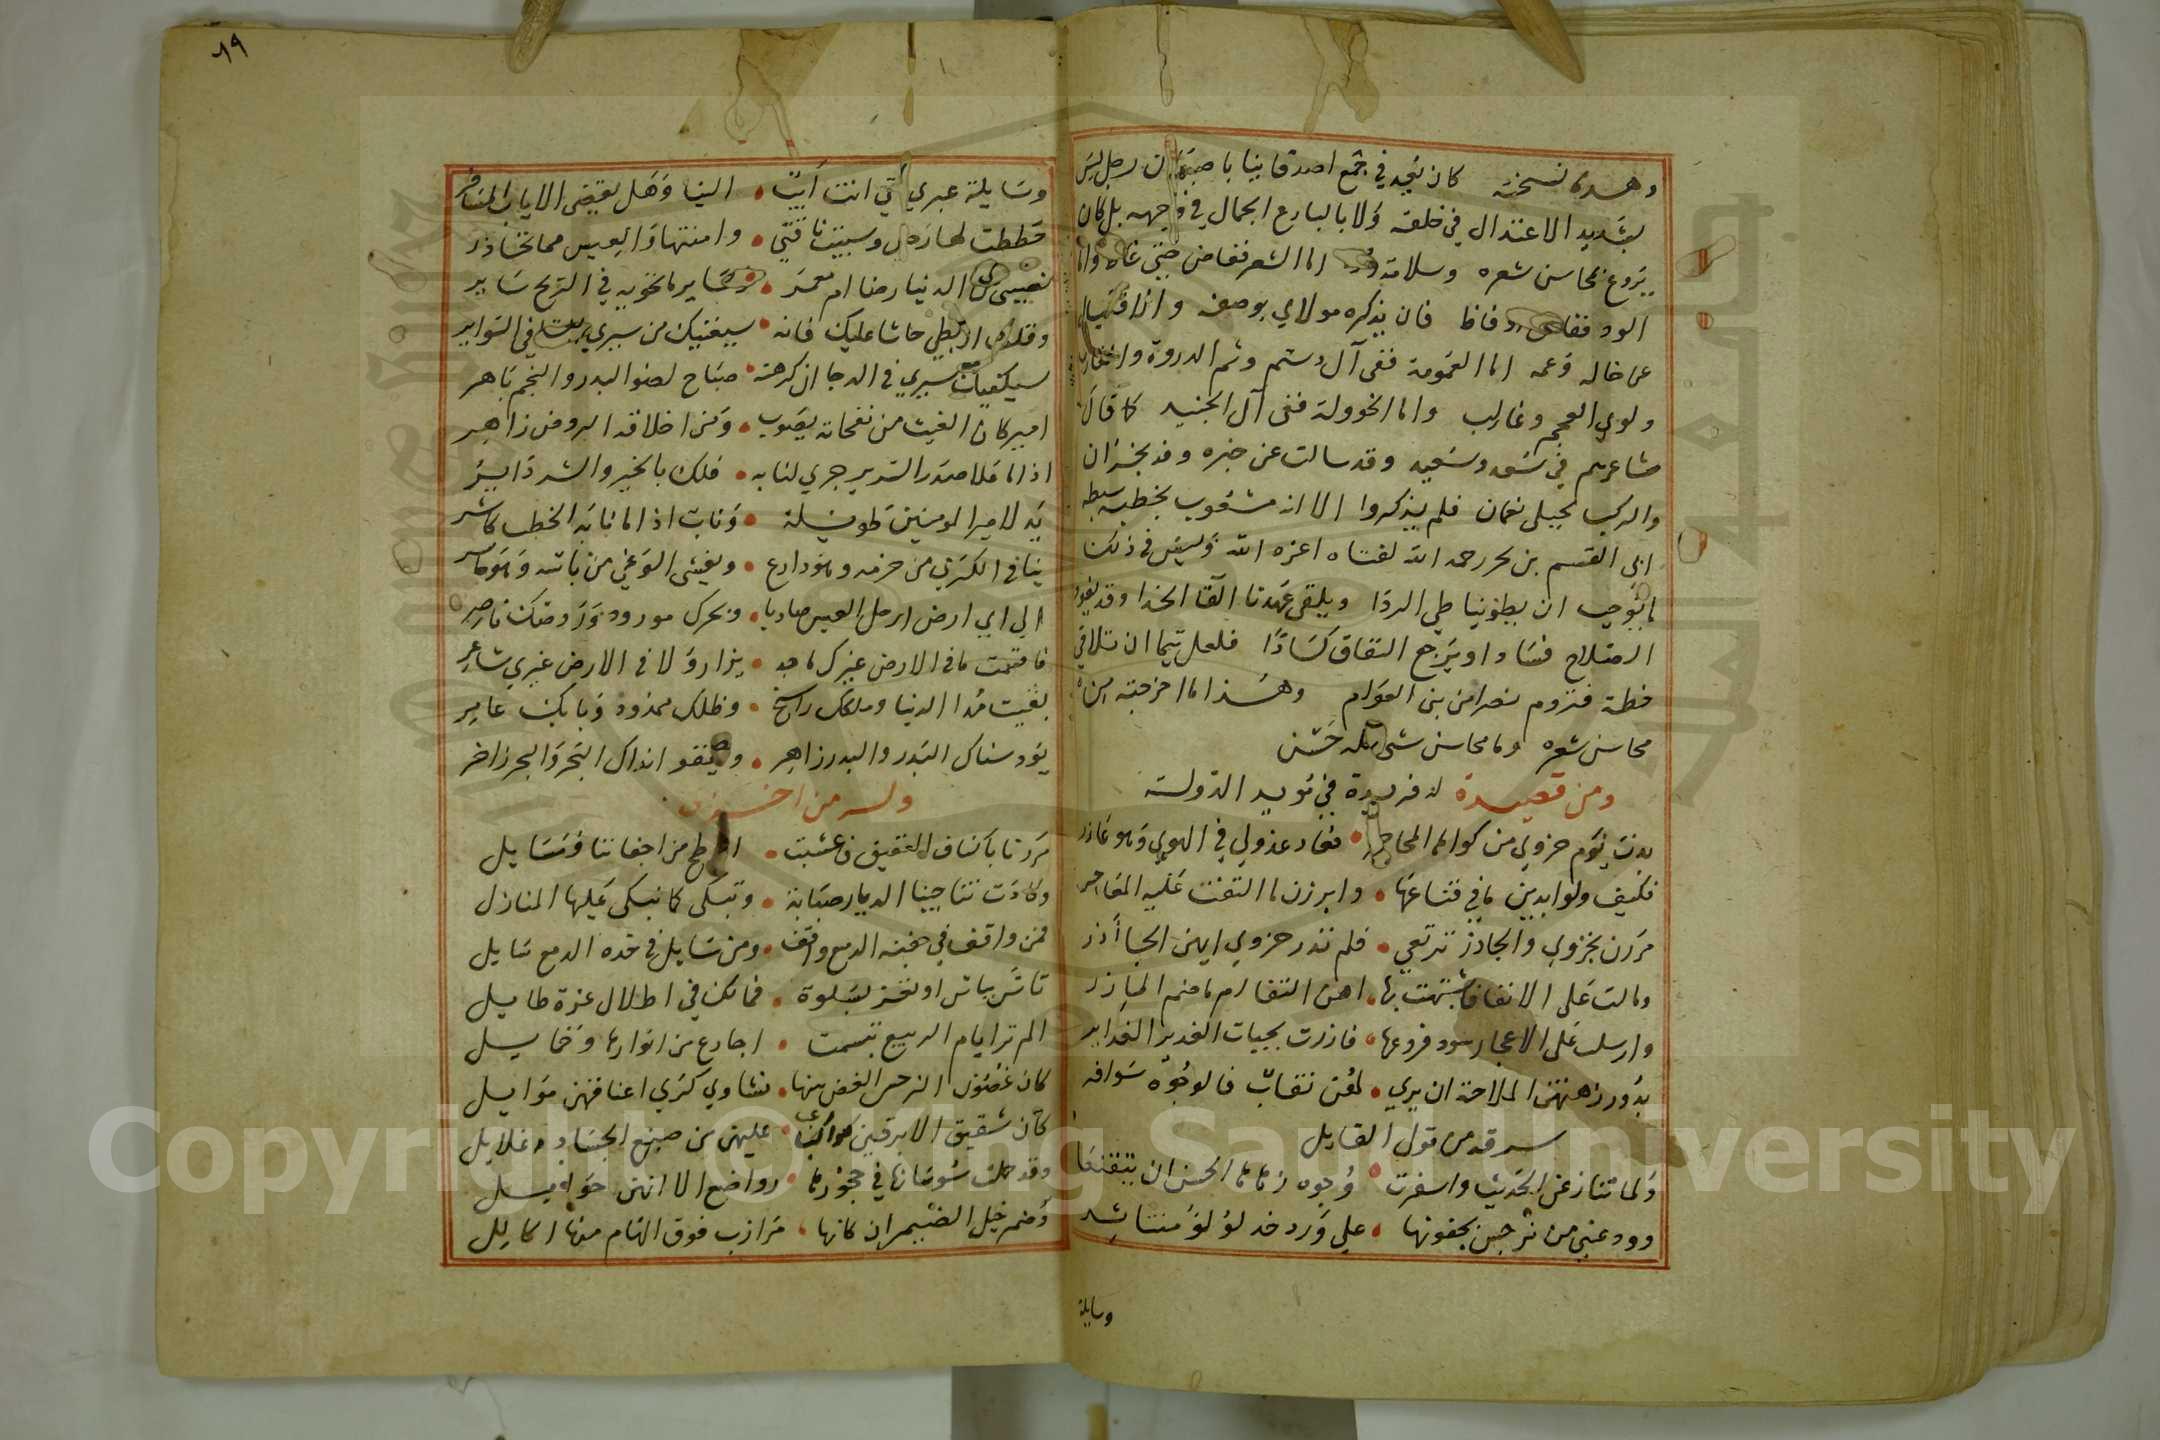 وهذه نسخته كان نجد في جمع اصدقاينا باصبهان رجل ليس
بشديد الاعتدال في خلقه ولا بالبارع الجمال في وجهه بل كان
يروع بمحاسن شعره وسلامة اما الشعر فغاض حتى غاض واما
الود ففاض وفاظ فان يذكره مولاي بوصفه والا فيسال
عن خاله وعمه اما العمومة ففي آل رستم وثم الدروة والغارب
ولوي العجم وغالب واما الخوولة ففي آل الجنيد كما قال
شاعرهم في سعد وسعيد وقد سالت عن خبره وفد نجران
والركب بجبلي نعمان فلم يذكروا الا انه مشغوب بخطبة سبطه
ابي القسم بن بحر رحمه الله لفتاه اعزه الله وليس في ذلك
ما يوجب ان يطوينا طي الردا ويلقى عهدنا القا الحذا وقد يعود
الصلاح فسادا ويرجع النفاق كسادًا فلعل تيما ان تلاقي
خطة فتروم نصرا من بني العوام وهذا ما اخرجته من
محاسن شعره وما محاسن شي كله حسن
ومن قصيدة له فريدة في مويد الدولة
بدت يوم حزوي من كوا المحاجر • فعاد عذولي في الهوي وهو عاذر
فكيف ولو ابدين ما في قناعها • وابرزن ما التفت عليه المعاجر
مررن بحزوي والجاذر ترتعي • فلم ندر حزوي ايهن الجاأذر
ومالت على الانقا فاشتبهت بها • اهن النقا ام ما ضم المازر
وارسلت على الاعجاز سود فروعها • فازرت بحيات الغدير الغداير
بدور زهتهن الملاحة ان يري • لهن نقاب فالوجوه سوافر
سرقه من قول القايل
ولما تنازعن الحديث واسفرت • وجوه زهاها الحسن ان تتقنعا
وودعني من نرجس بجفونها • علي ورد خد لؤلؤ متناثر
وسايلة
٨٩
وسايلة عبري متي انت آيب • الينا وهل يقضي الاياب المسافر
حططت لها رحلي وسيبت ناقتي • وامنتها والعيس مما تحاذر
نصيبي من الدنيا رضا ام معمر • وساير ما تحويه في الريح ساير
وقلت ابطي حاشا عليك فانه • سيغنيك من سيري في السواير
سيكفيك سيري في الدجا ان كرهته • صباح لصنو البدر والنجم باهر
امير كان الغيث من نفحاته يصوب • ومن اخلاقه الروض زاهر
اذا ما علا صدر السرير جري لنا به • فلك بالخير والشر داير
يد لامير المومنين طويلة • وناب اذا ما نابه الخطب كاشر
ينافي الكري من حزمه وهو دارع • ويغشي الوغي من باسه وهو حاسر
الي اي ارض ارحل العيس صاديا • وبحرك مورود وروضك ناضر
فاقمت ما في الارض غيرك ماجد • يزار ولا في الارض غيري شاعر
بقيت مدا الدنيا وملكك راسخ • وظلك ممدود وبابك عامر
يود سناك البدر والبدر زاهر • ويقفو نداك البحر والبحر زاخر
وله من اخري
مررنا باكناف العقيق فاعشبت • اباطح من اجفاننا ومسايل
وكادت تناجينا الديار صبابة • وتبكي كما نبكي عليها المنازل
فمن واقف في جفنه الدمع واقف • ومن سايل في خده الدمع سايل
تاس بياس او تعز بسلوة • فما لك في اطلال عزة طايل
الم تر ايام الربيع تبسمت • اجارع من انوارها وخمايل
كان غصون النرجس الغض بينها • نشاوي كري اعنافهن موايل
كان شقيق الابرقين كواعب • عليهن من صبغ الجساد غلايل
وقد حملت سوسانها في حجورها • رواضع الا انهن حوامل
وضم خيل الضيمران كانها • مرازب فوق الهام منها اكاليل